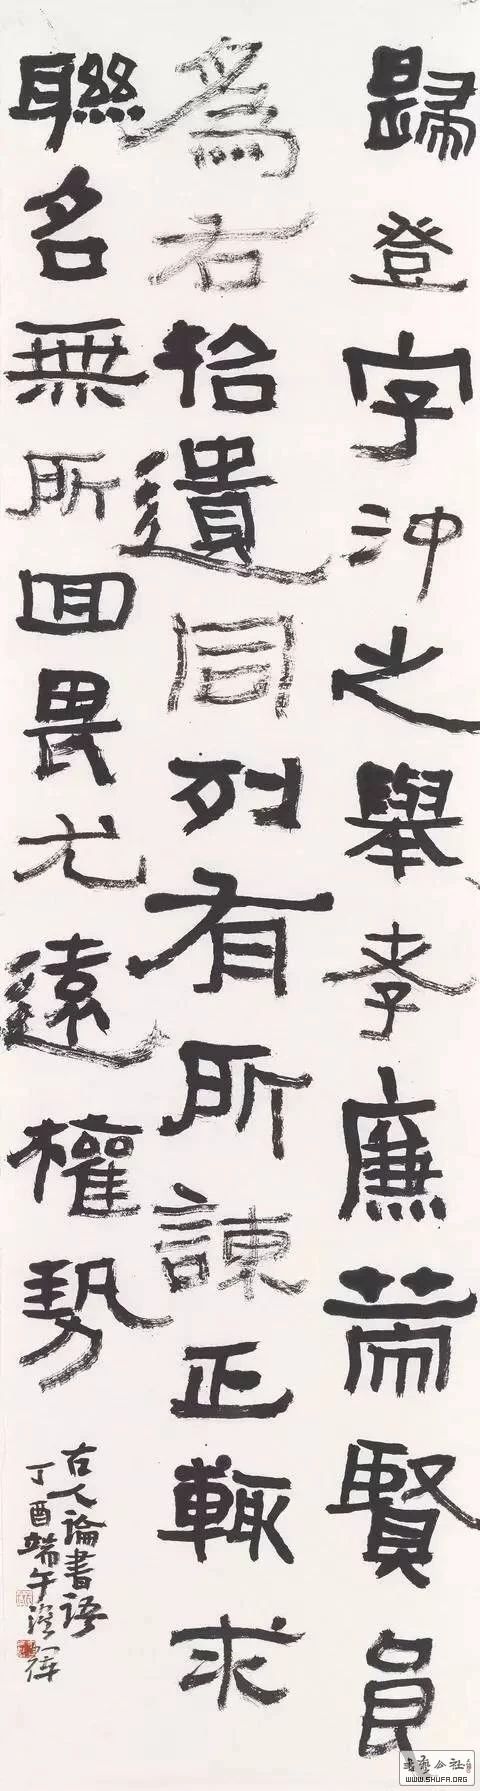 歸登字沖之舉孝廉耑賢員
為右拾遺同列有所諫正輒求
聯名無所回畏尤遠權勢
古人論書語
丁酉端午
書藝公社
WWW.SHUFA.ORG